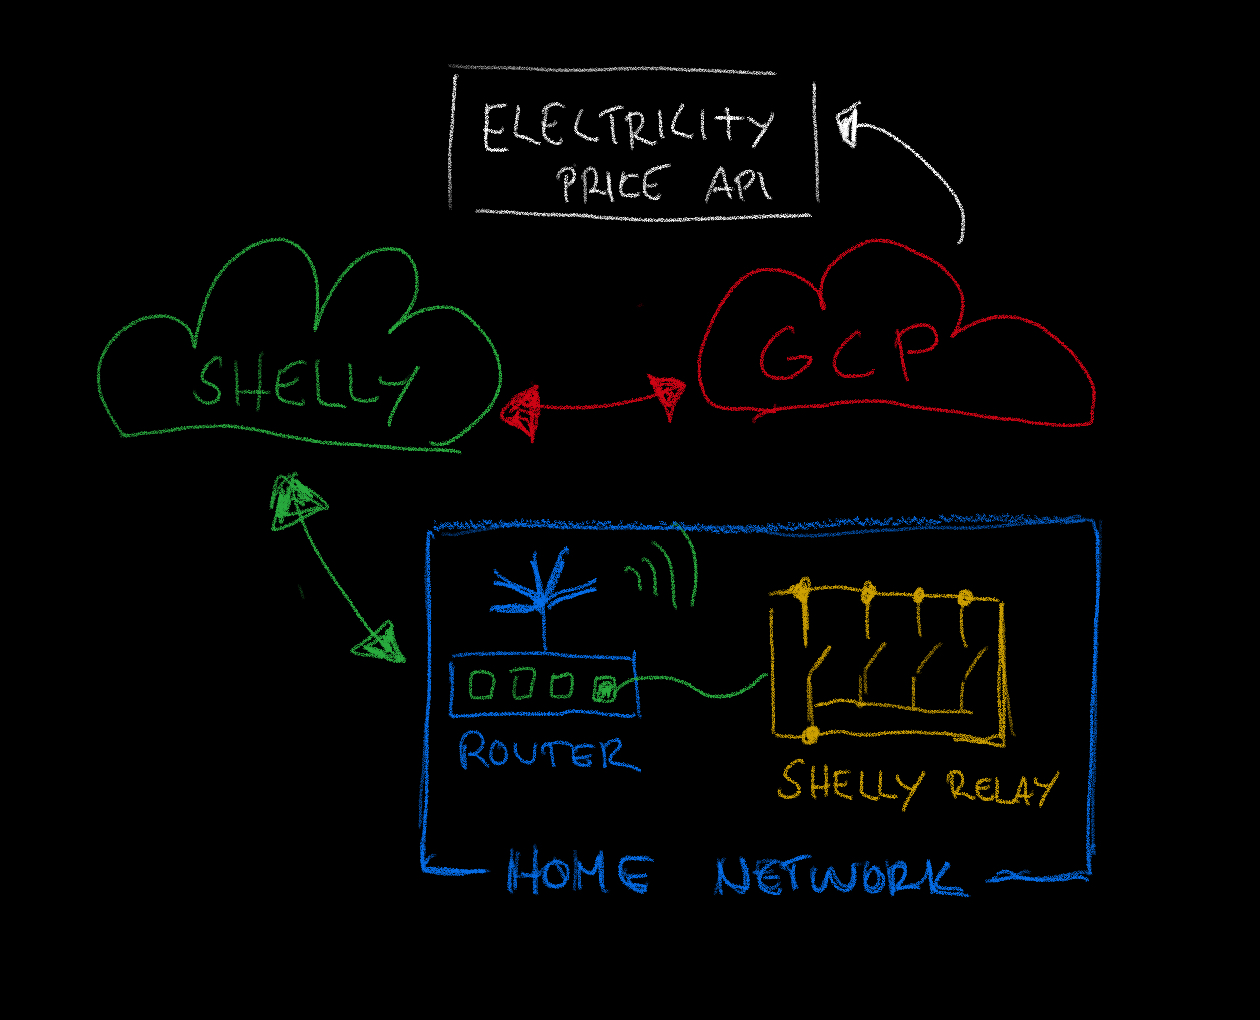 ELECTRICITY
PRICE API
SHELLY
GCP
ROUTER
SHELLY RELAY
HOME NETWORK